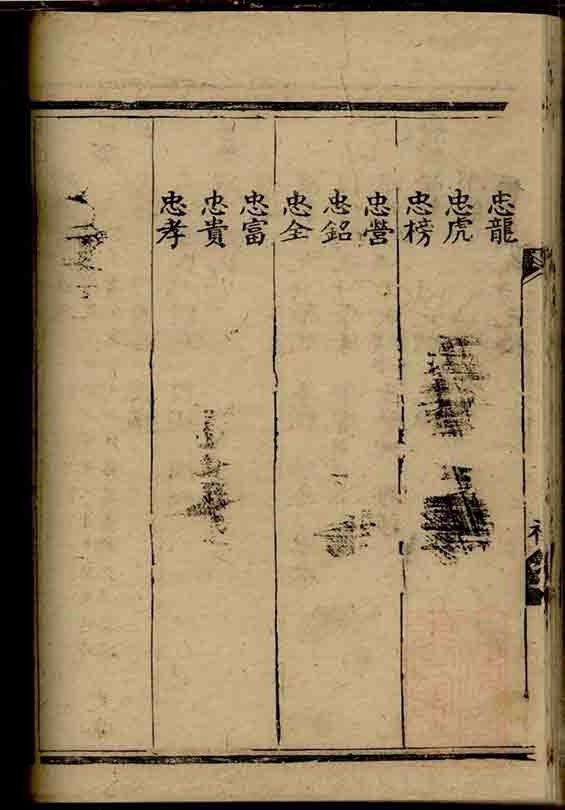 忠龍
忠虎
忠榜
忠營
忠銘
忠全
忠富
忠貴
忠孝